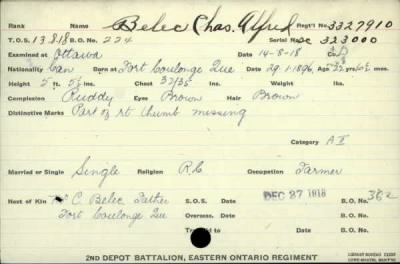 Rank Name Belec Chas. Alfred Reg't No. 3327910
T.O.S. 13 8 18 B.O. No. 224 Serial No. 323000
Examined at Ottawa Date 14-8-18
Nationality Can Born at Fort Coulonge Que Date 29-1-1896 Age yrs. mos.
Height ft. ins. Chest ins. Weight
Complexion Ruddy Eyes Brown Hair Brown
Distinctive Marks Part of rt thumb missing
Category A II
Married or Single Single Religion R.C. Occupation Farmer
Next of Kin C. Belec Father S.O.S. Date DEC 27 1918 B.O. No. 362
Fort Coulonge Que Overseas. Date B.O. No.
Date B.O. No.
2ND DEPOT BATTALION, EASTERN ONTARIO REGIMENT